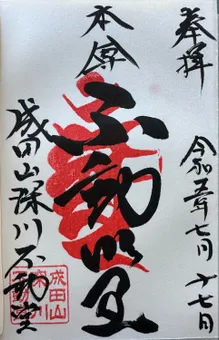 奉拝
令和五年七月十七日
本尊
不動明王
成田山深川不動堂